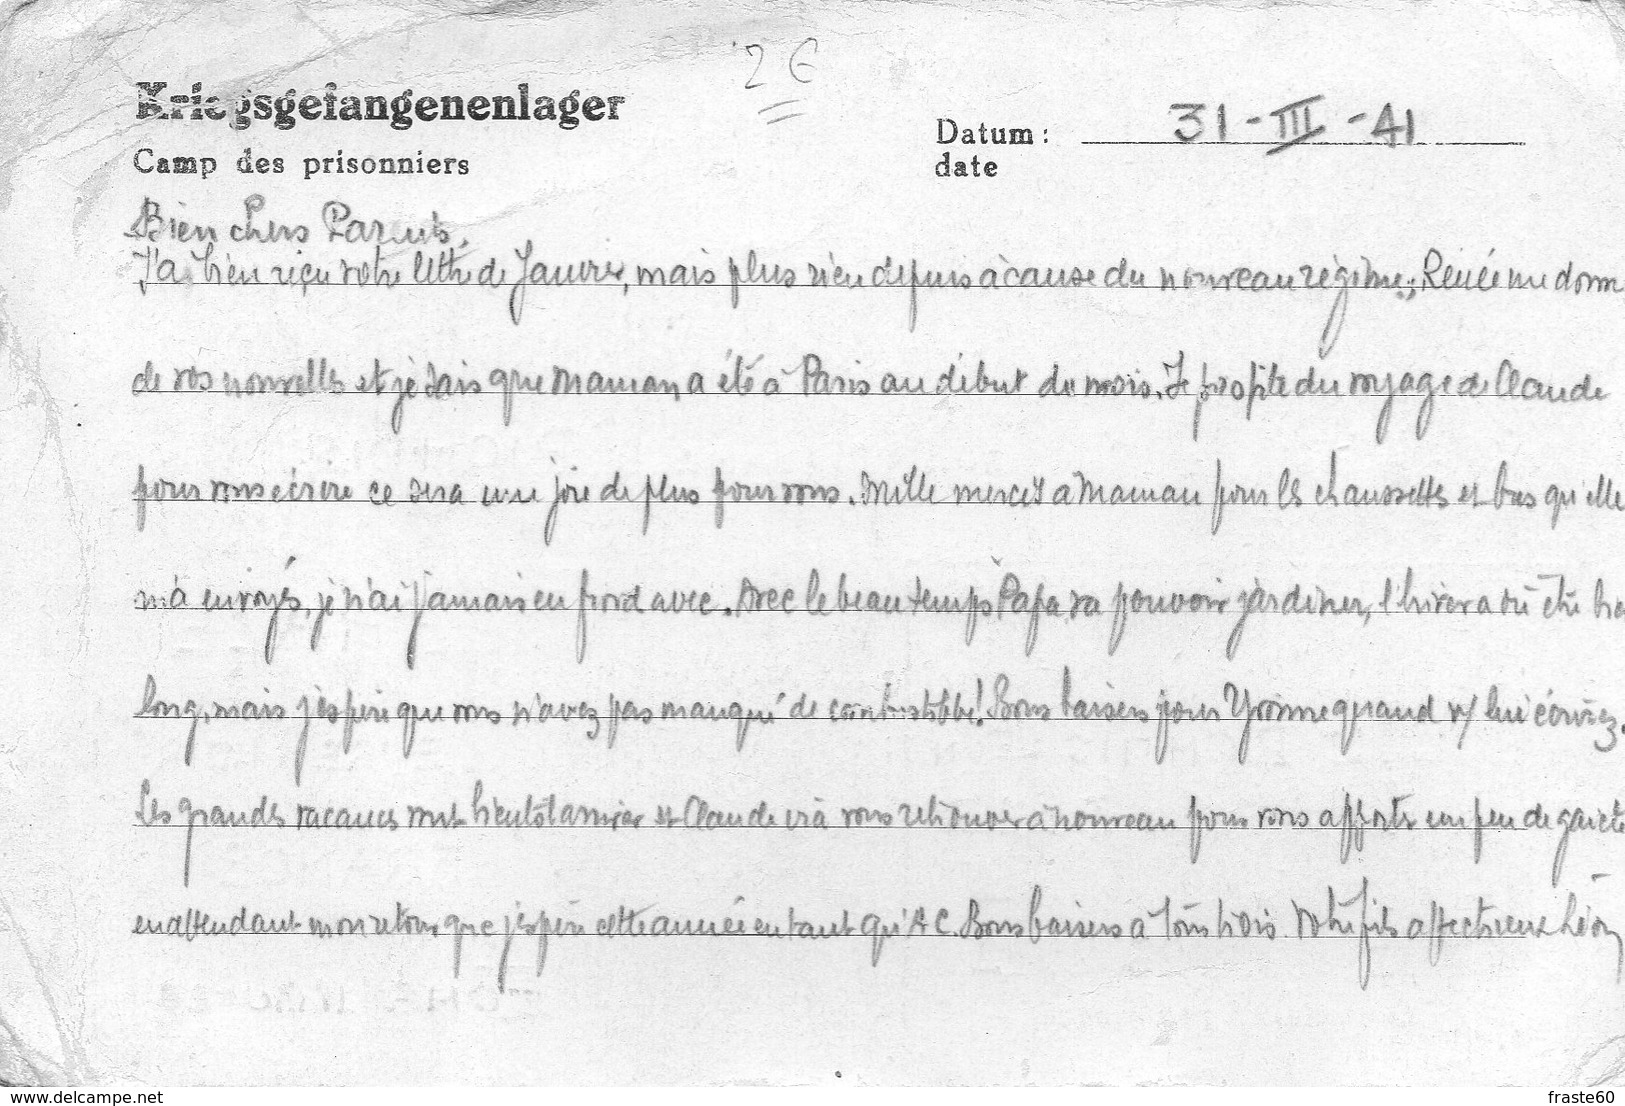 2 €
Kriegsgefangenenlager
Camp des prisonniers
Datum: 31-III-41
date
Bien chers Parents,
J'ai bien reçu votre lettre de Janvier, mais plus rien depuis à cause du nouveau régime; Renée me donne
de vos nouvelles et je sais que Maman a été à Paris au début du mois. Je profite du voyage de Claude
pour vous écrire ce sera une joie de plus pour vous. Mille mercis à Maman pour les chaussettes et bas qu'elle
m'a envoyés, je n'ai jamais eu froid avec. Avec le beau temps Papa va pouvoir jardiner, l'hiver a dû être bien
long, mais j'espère que vous n'avez pas manqué de combustible! Bons baisers pour Yvonne quand v/ lui écrivez.
Les grandes vacances vont bientôt arriver et Claude ira vous retrouver à nouveau pour vous apporter un peu de gaieté
en attendant mon retour que j'espère cette année en tant qu'AC. Bons baisers à tous trois. Votre fils affectueux Léon
www.delcampe.net
fraste60